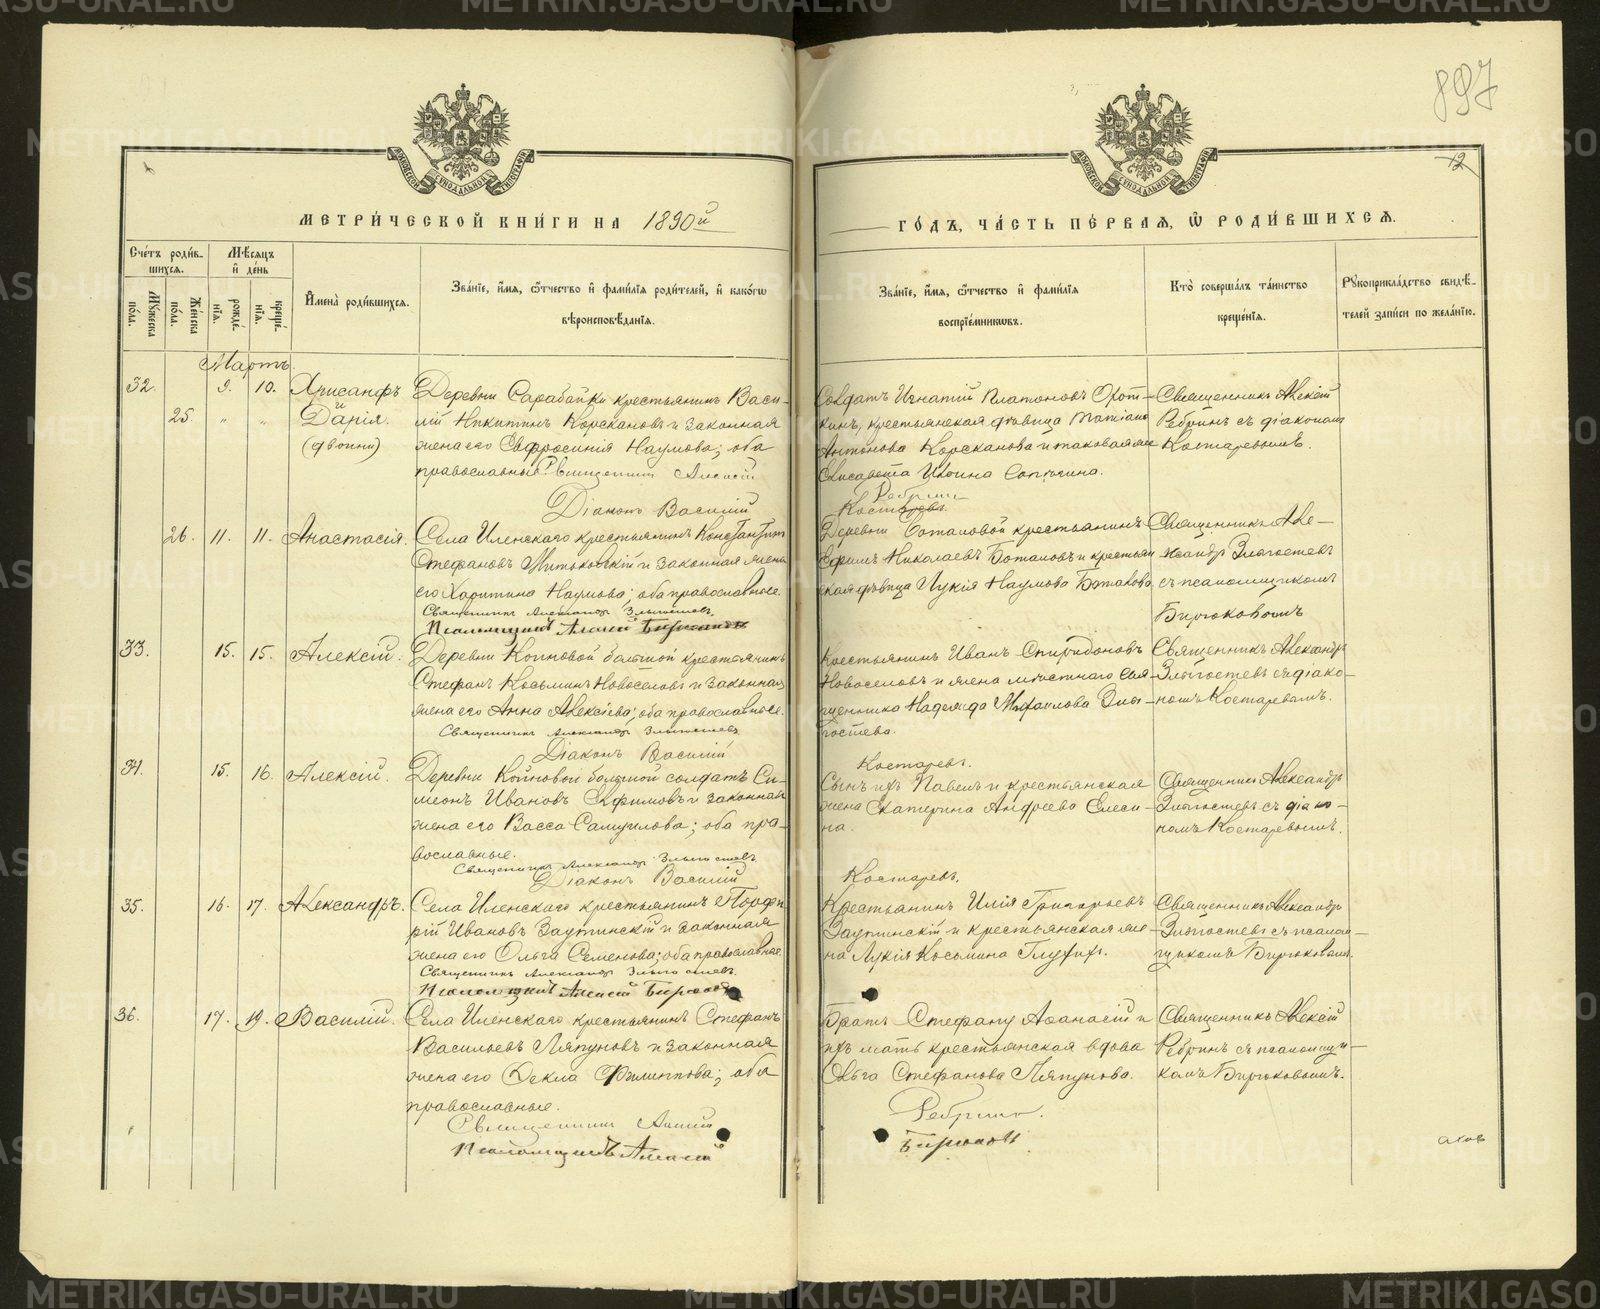 897
12
МЕТРИ́ЧЕСКОЙ КНИ́ГИ НА 1890й
ГО́ДЪ, ЧА́СТЬ ПЕ́РВАЯ, Ѡ҆ РОДИ́ВШИХСЯ.
Сче́тъ роди́в-
шихся.
Мѣ́сяцъ
и҆ де́нь
Мꙋ́жеска по́ла.
Же́нска по́ла.
рожде́-
нїѧ.
креще́-
нїѧ.
И҆мена̀ роди́вшихся.
Зва́нїе, и҆́мѧ, ѻ҆́тчество и҆ фами́лїѧ роди́телей, и҆ како́гѡ
вѣроисповѣ́данїѧ.
Зва́нїе, и҆́мѧ, ѻ҆́тчество и҆ фами́лїѧ
воспрїе́мникѡвъ.
Кто̀ соверша́лъ та́инство
креще́нїѧ.
Рꙋкоприкла́дство свидѣ́-
телей за́писи по жела́нїю.
Мартъ
32. 9. 10. Хрисанфъ
и
25. „ „ Дарія.
(двойни)
Деревни Сарабайки крестьянинъ Васи-
лій Никитинъ Корскановъ и законная
жена его Евфросинія Наумова; оба
православные. Священникъ Алексій
Діаконъ Василій
Солдатъ Игнатій Платоновъ Охот-
кинъ, крестьянская дѣвица Татіана
Антонова Корсканова и таковая же
Елисавета Ильина
Ребринъ
Костаревъ.
Священникъ Алексій
Ребринъ съ діакономъ
Костаревымъ.
26. 11. 11. Анастасія.
Села Иленскаго крестьянинъ Константинъ
Стефановъ Митьковскій и законная жена
его Харитина Наумова; оба православные.
Священникъ Александръ Злыгостевъ.
Псаломщикъ Алексій Бирюковъ
Деревни Боталовой крестьянинъ
Ефимъ Николаевъ Боталовъ и крестьян
ская дѣвица Лукія Наумова Боталова
Священникъ Алек-
сандръ Злыгостевъ
съ псаломщикомъ
Бирюковымъ
33. 15. 15. Алексій.
Деревни Койновой большой крестьянинъ
Стефанъ Косьминъ Новоселовъ и законная
жена его Анна Алексіева; оба православные.
Священникъ Александръ Злыгостевъ
Діаконъ Василій
Крестьянинъ Иванъ Спиридоновъ
Новоселовъ и жена мѣстнаго свя-
щенника Надежда Михаилова Злы-
гостева.
Костаревъ.
Священникъ Александръ
Злыгостевъ съ діако-
номъ Костаревымъ.
34. 15. 16. Алексій.
Деревни Койновой большой солдатъ Си-
меонъ Ивановъ Ефимовъ и законная
жена его Васса Самуилова; оба пра-
вославные.
Священникъ Александръ Злыгостевъ
Діаконъ Василій
Сынъ ихъ Павелъ и крестьянская
жена Екатерина Андреева Елеси-
на.
Костаревъ.
Священникъ Александръ
Злыгостевъ съ діако-
номъ Костаревымъ.
35. 16. 17. Александръ.
Села Иленскаго крестьянинъ Порфи
рій Ивановъ Заутинскій и законная
жена его Ольга Семенова; оба православные.
Священникъ Александръ Злыгостевъ.
Псаломщикъ Алексій Бирюковъ
Крестьянинъ Илія Григорьевъ
Заутинскій и крестьянская же-
на Лукія Косьмина Глухихъ.
Священникъ Александръ
Злыгостевъ съ псалом-
щикомъ Бирюковымъ.
36. 17. 19. Василій.
Села Иленскаго крестьянинъ Стефанъ
Васильевъ Ляпуновъ и законная
жена его Ѳекла Филиппова; оба
православные.
Священникъ Алексій
Псаломщикъ Алексій
Братъ Стефану Аѳанасій и
ихъ мать крестьянская вдова
Ольга Стефанова Ляпунова.
Ребринъ.
Бирюковъ
Священникъ Алексій
Ребринъ съ псаломщи-
комъ Бирюковымъ.
METRIKI.GASO-URAL.RU